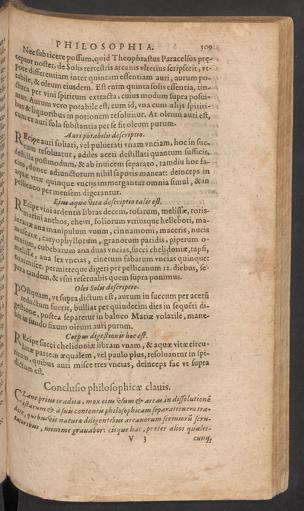 PHILOSOPHIA. 309
Nec subticere possum, quid Theophrastus Paracelsus præ-
ceptor noster, de Solis terrestris arcanis vlterius scripserit, ve-
pote differentiam inter quintam essentiam auri, aurum po-
tabile, & oleum eiusdem. Est enim quinta solis essentia, tin-
ctura per vini spiritum extracta, cuius modum supra posui-
mus. Aurum vero potabile est, cum id, vna cum alijs spiriti-
bus & liquoribus in potionem resoluitur. At oleum auri est,
cum ex auri sola substantia per se fit oleum purum.
Auri potabilis descriptio.
REcipe auri foliati, vel puluerati vnam vnciam, hoc in suc-
cum resoluatur, addes aceti destillati quantum sufficit,
destilla postmodum, & ab inuicem separato, tamdiu hoc fa-
donec adiunctorum nihil saporis maneat: deinceps in
aquæ vitæ quinque vncijs immergantur omnia simul, & in
Pellicano per mensem digerantur.
Eius aquæ vitæ descriptio talis est.
REcipe vini ardentis libras decem, rosarum, melissæ, roris-
marini anthos, cheiri, foliorum vtriusque hellebori, ma-
ioranæ ana manipulum vnum, cinnamomi, maceris, nucis
muscatæ, caryophyllorum, granorum paridis, piperum o-
mnium, cubebarum ana duas vncias, succi chelidoniæ, tapsi,
ana sex vncias, cinerum fabarum vncias quinque:
commisce, permitteque digeri per pellicanum 12. diebus, se-
para tandem, & vsui reseruabis quem supra ponimus.
Olei Solis descriptio.
POstquam, vt supra dictum est, aurum in succum per acetũ
reductum fuerit, bulliat per quindecim dies in sequesti di-
gestione, postea separetur in balneo Mariæ volatile, mane-
bit in fundo fixum oleum auri purum.
Corpus digestionis hoc est.
REcipe succi chelidoniæ libram vnam, & aquæ vitæ circu-
latæ partem æqualem, vel paulo plus, resoluantur in spi-
dictum est.
Conclusio philosophicæ clauis.
CLaue prius tradita, mox eius vsum & artem in dissolutionẽ
V 3 cunq;